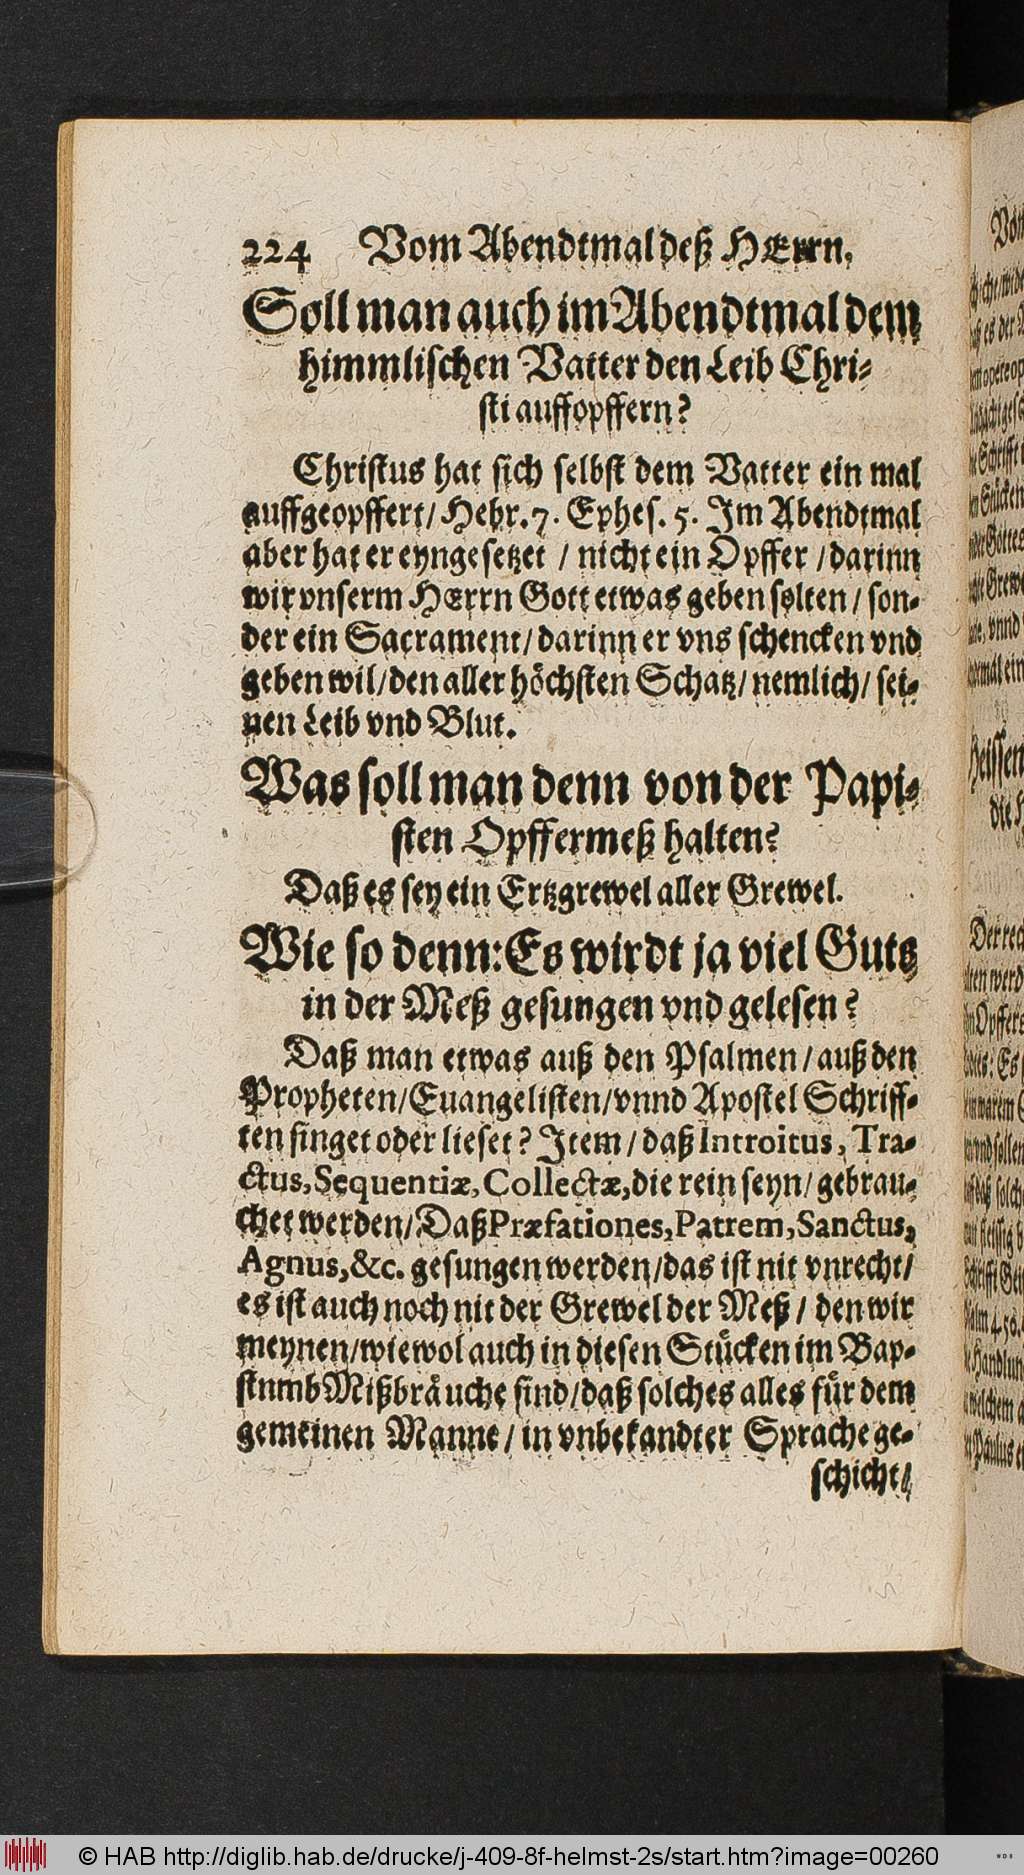 224 Vom Abendtmal deß HErrn,
Soll man auch im Abendtmal dem
himmlischen Vatter den Leib Chri-
sti auffopffern?
Christus hat sich selbst dem Vatter ein mal
auffgeopffert/ Hebr. 7. Ephes. 5. Im Abendtmal
aber hat er eyngesetzet / nicht ein Opffer / darinn
wir vnserm HErrn Gott etwas geben solten / son-
der ein Sacrament/ darinn er vns schencken vnd
geben wil/ den aller höchsten Schatz/ nemlich/ sei-
nen Leib vnd Blut.
Was soll man denn von der Papi-
sten Opffermeß halten?
Daß es sey ein Ertzgrewel aller Grewel.
Wie so denn: Es wirdt ja viel Guts
in der Meß gesungen vnd gelesen?
Daß man etwas auß den Psalmen/ auß den
Propheten/ Euangelisten/ vnnd Apostel Schriff-
ten singet oder lieset? Item/ daß Introitus, Tra-
ctus, Sequentiæ, Collectæ, die rein seyn/ gebrau-
chet werden/ Daß Præfationes, Patrem, Sanctus,
Agnus, &c. gesungen werden/ das ist nit vnrecht/
es ist auch noch nit der Grewel der Meß / den wir
meynen/ wiewol auch in diesen Stücken im Bap-
stumb Mißbräuche sind/ daß solches alles für dem
gemeinen Manne / in vnbekandter Sprache ge-
schicht/
© HAB http://diglib.hab.de/drucke/j-409-8f-helmst-2s/start.htm?image=00260